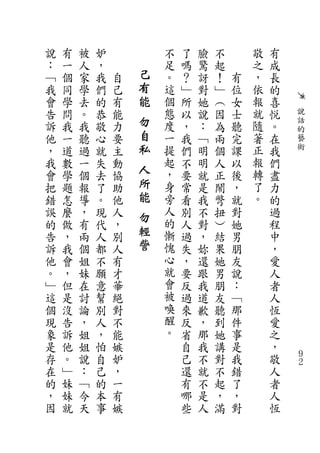 說話的藝術
有成長的喜悅。在我們盡力的過程中，愛人者人恆愛之，敬人者人恆
敬之，依報就隨著正報轉了。
有位女士聽完課以後，就對她男朋友說：「那件事是我錯了，對
不起！」（因為兩個人正鬧彆扭）結果她男朋友聽到她講對不起，滿
臉驚訝對她說：「明明就是我不對，妳還跟我道歉，那我不就不是人
了嗎？」所以，我們不要常看別人過失，要反過來反省自己還有哪些
不足。這個態度一提起，身旁人的慚愧心就會被喚醒。
己有能　勿自私　人所能　勿輕訾
自己有能力要主動協助他人，別人有才華絕對不能嫉妒，一有嫉
妒，我們的恭敬心就失去了。現代人都不願意幫別人，怕自己的本事
被人家學去。我聽過一個報導，有兩個姐妹在討論，姐姐說：「今天
有一個同學問我一道數學題怎麼做，我會，但是沒告訴他。」妹妹就
說：「我會告訴他，我會把錯誤的告訴他。」這個現象是存在的，因
92